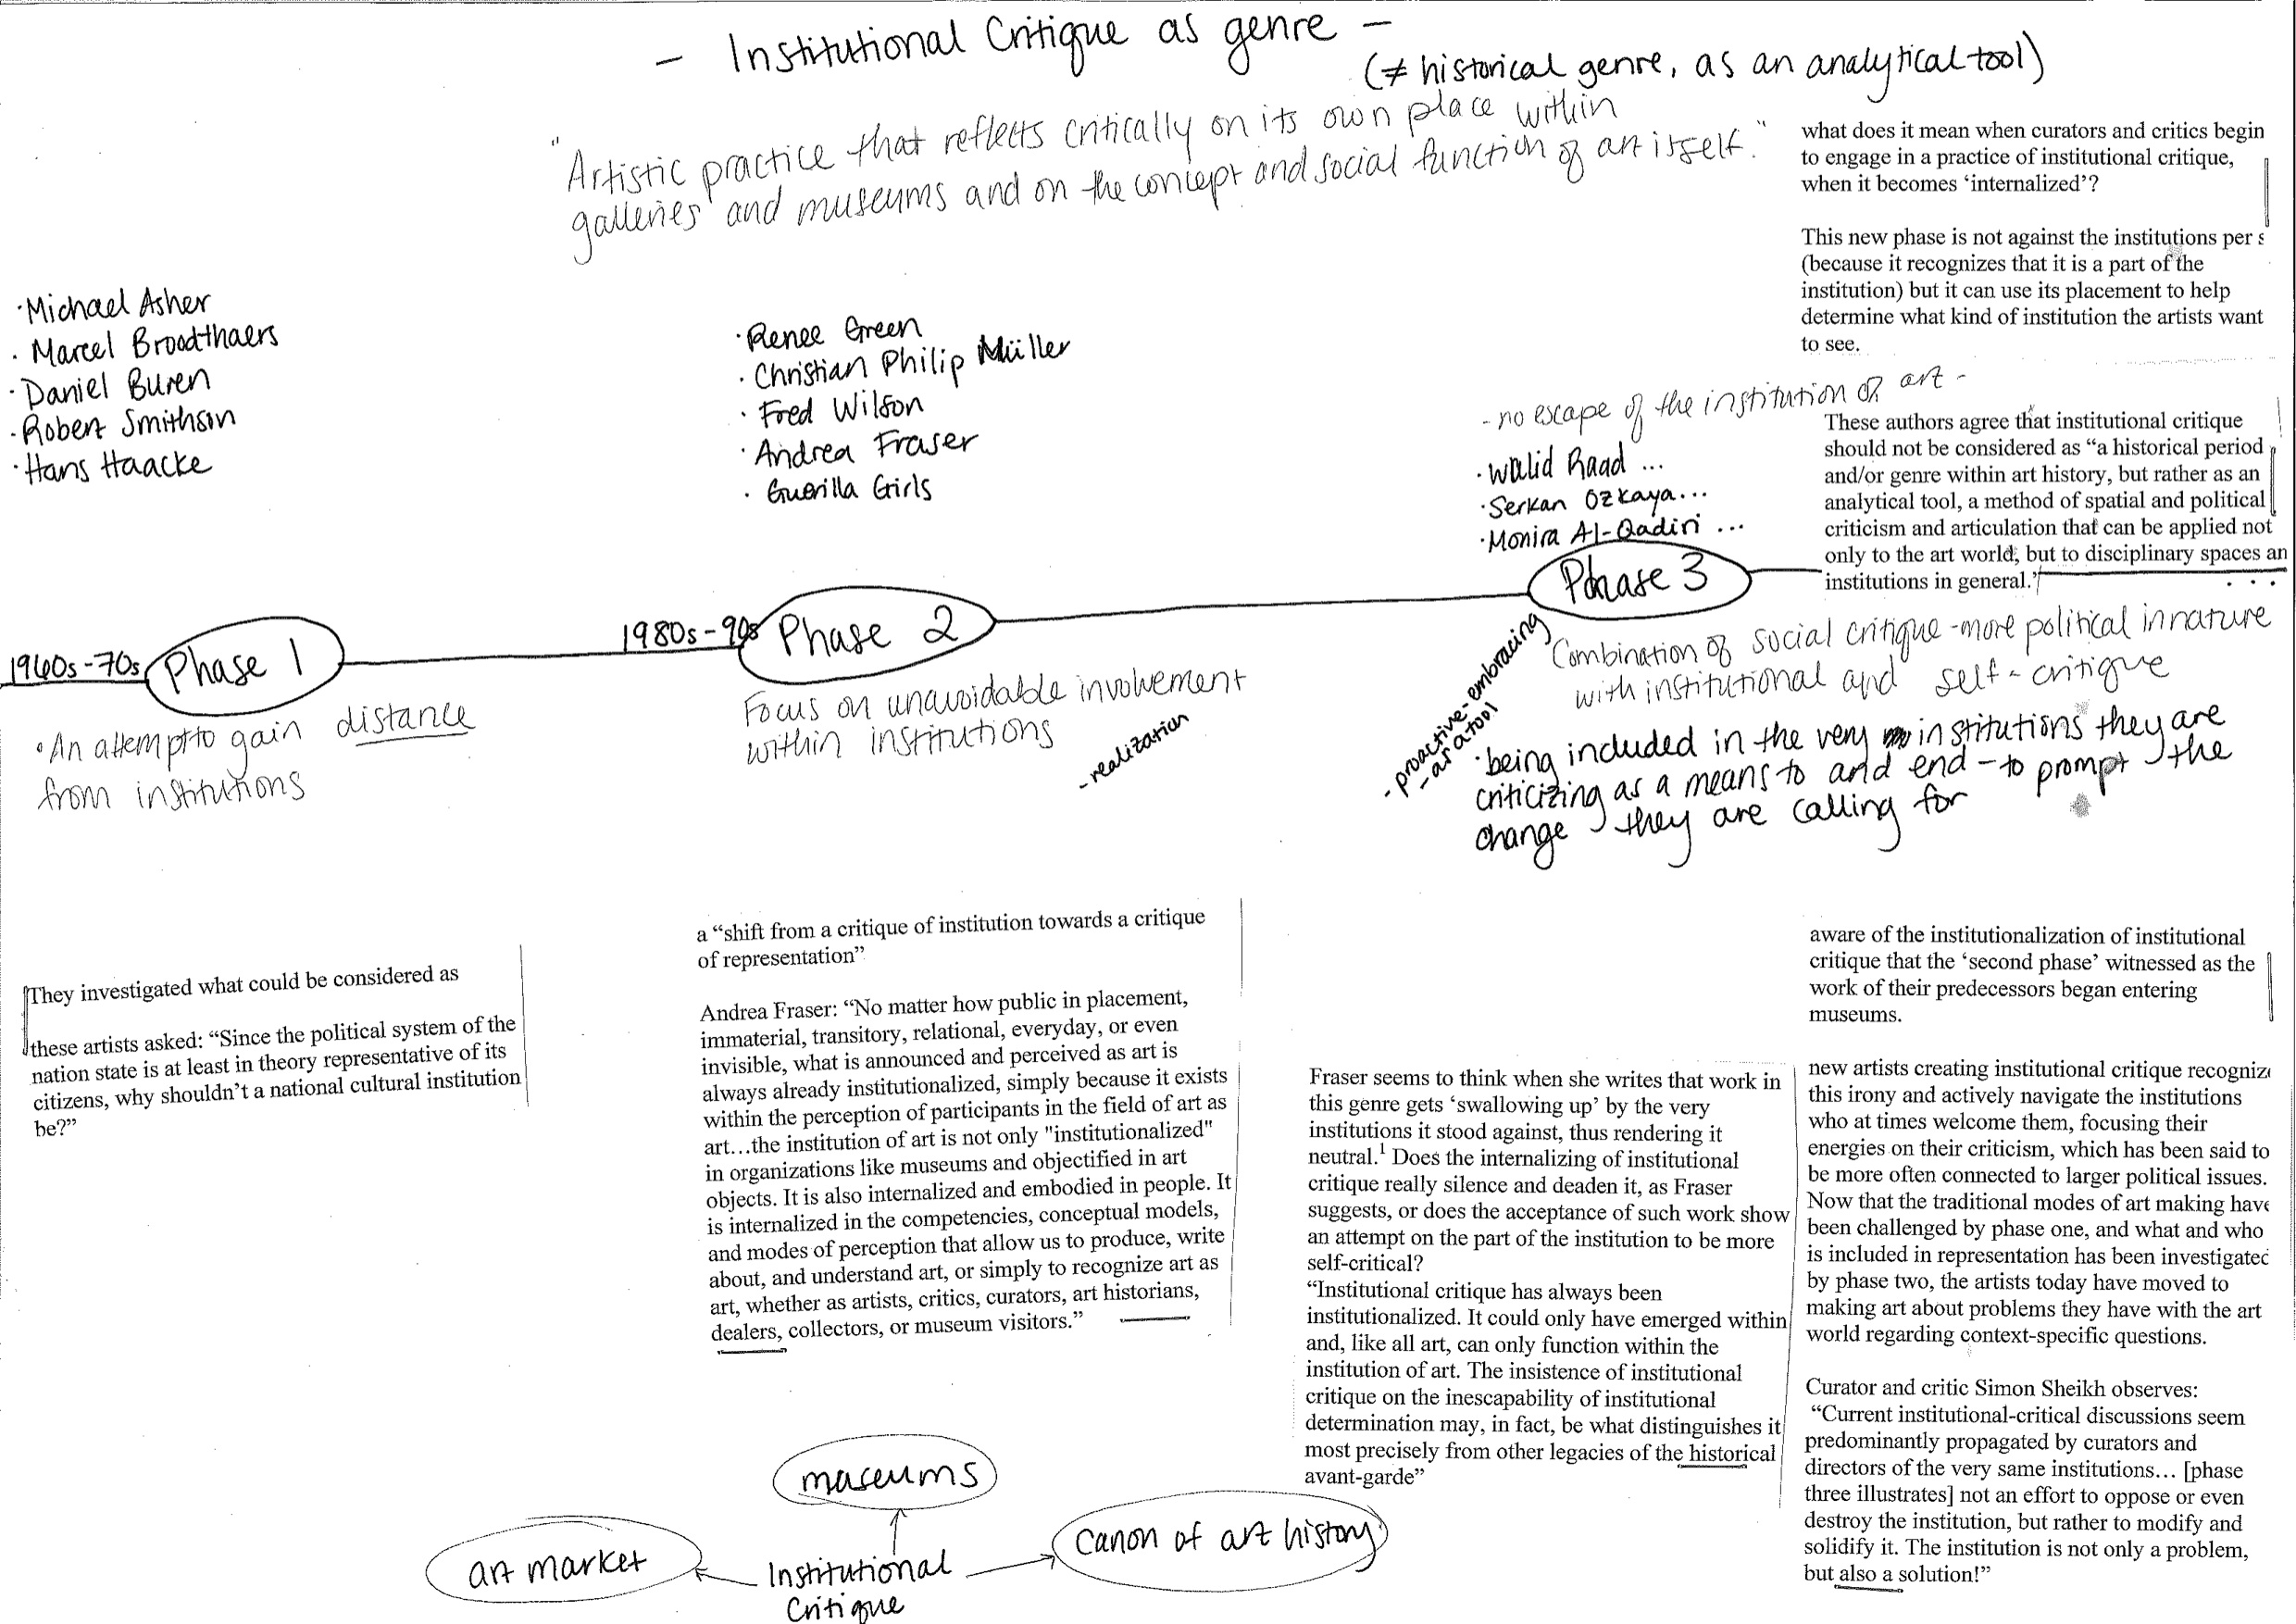 - Institutional Critique as genre -
(≠ historical genre, as an analytical tool)
"Artistic practice that reflects critically on its own place within
galleries and museums and on the concept and social function of art itself."
what does it mean when curators and critics begin
to engage in a practice of institutional critique,
when it becomes ‘internalized’?
This new phase is not against the institutions per s
(because it recognizes that it is a part of the
institution) but it can use its placement to help
determine what kind of institution the artists want
to see.
· Michael Asher
· Marcel Broodthaers
· Daniel Buren
· Robert Smithson
· Hans Haacke
· Renee Green
· Christian Philip Müller
· Fred Wilson
· Andrea Fraser
· Guerilla Girls
- no escape of the institution of art -
· Walid Raad ...
· Serkan Ozkaya...
· Monira Al-Qadiri ...
These authors agree that institutional critique
should not be considered as “a historical period
and/or genre within art history, but rather as an
analytical tool, a method of spatial and political
criticism and articulation that can be applied not
only to the art world, but to disciplinary spaces an
institutions in general.”
...
1960s-70s
Phase 1
1980s-90s
Phase 2
Phase 3
· An attempt to gain distance
from institutions
Focus on unavoidable involvement
within institutions
- realization
- proactive - embracing
- as a tool
Combination of social critique - more political in nature
with institutional and self-critique
· being included in the very institutions they are
criticizing as a means to and end - to prompt the
change they are calling for
They investigated what could be considered as
these artists asked: “Since the political system of the
nation state is at least in theory representative of its
citizens, why shouldn’t a national cultural institution
be?”
a “shift from a critique of institution towards a critique
of representation”
Andrea Fraser: “No matter how public in placement,
immaterial, transitory, relational, everyday, or even
invisible, what is announced and perceived as art is
always already institutionalized, simply because it exists
within the perception of participants in the field of art as
art…the institution of art is not only "institutionalized"
in organizations like museums and objectified in art
objects. It is also internalized and embodied in people. It
is internalized in the competencies, conceptual models,
and modes of perception that allow us to produce, write
about, and understand art, or simply to recognize art as
art, whether as artists, critics, curators, art historians,
dealers, collectors, or museum visitors.”
Fraser seems to think when she writes that work in
this genre gets ‘swallowing up’ by the very
institutions it stood against, thus rendering it
neutral.¹ Does the internalizing of institutional
critique really silence and deaden it, as Fraser
suggests, or does the acceptance of such work show
an attempt on the part of the institution to be more
self-critical?
“Institutional critique has always been
institutionalized. It could only have emerged within
and, like all art, can only function within the
institution of art. The insistence of institutional
critique on the inescapability of institutional
determination may, in fact, be what distinguishes it
most precisely from other legacies of the historical
avant-garde”
aware of the institutionalization of institutional
critique that the ‘second phase’ witnessed as the
work of their predecessors began entering
museums.
new artists creating institutional critique recognize
this irony and actively navigate the institutions
who at times welcome them, focusing their
energies on their criticism, which has been said to
be more often connected to larger political issues.
Now that the traditional modes of art making have
been challenged by phase one, and what and who
is included in representation has been investigated
by phase two, the artists today have moved to
making art about problems they have with the art
world regarding context-specific questions.
Curator and critic Simon Sheikh observes:
“Current institutional-critical discussions seem
predominantly propagated by curators and
directors of the very same institutions… [phase
three illustrates] not an effort to oppose or even
destroy the institution, but rather to modify and
solidify it. The institution is not only a problem,
but also a solution!”
museums
art market
Institutional
Critique
canon of art history